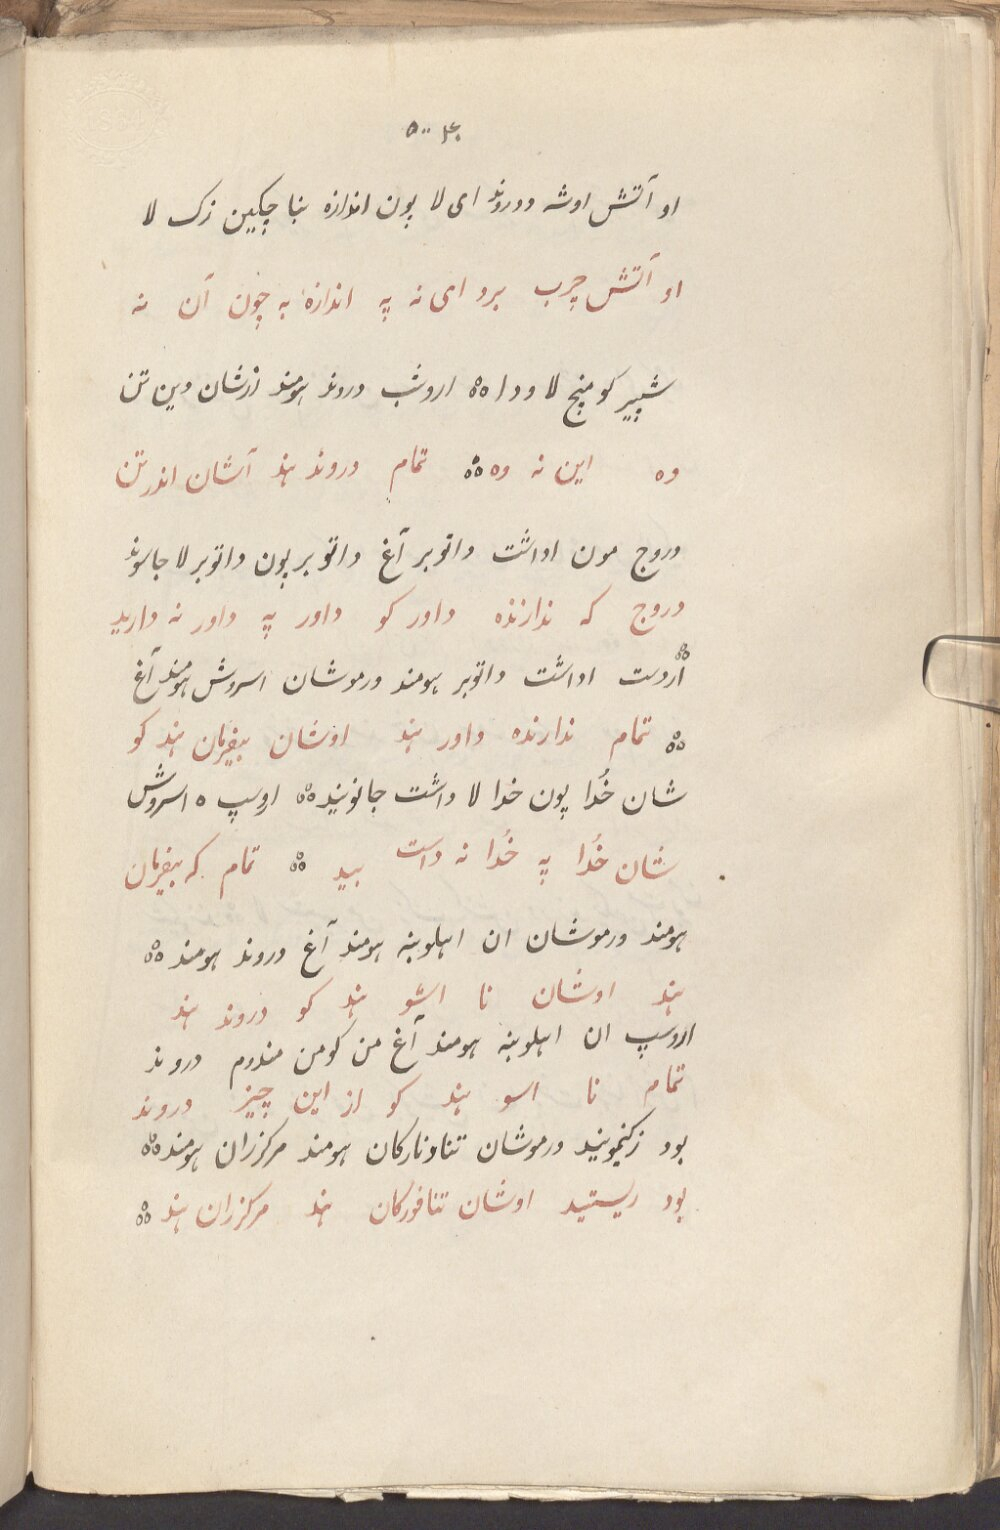 او آتش اوشه دوروند ای لا پون اندازه بنا چکین زک لا
او آتش چرب برو ای نه په اندازهٔ به چون آن نه
شپیر کو منج لا ودا ه اروشب دروند هومند ازشان دین تن
وه این نه وه تمام دروند هند آشان اندر تن
دروج مون اواشت داتوبر آغ داتوبر پون داتوبر لا جاسوند
دروج که ندارنده داور کو داور په داور نه دارید
اروست اداشت داتوبر هومند ورموشان اسروش هومند آغ
تمام ندارنده داور هند اوشان بیفرمان هند کو
شان خُدا پون خدا لا داشت جانونید اوسپ ه اسروش
شان خُدا په خُدا نه داست بید تمام که بیفرمان
هومند ورموشان ان اهلوبنه هومند آغ دروند هومند
هند اوشان نا اشو هند کو دروند هند
اروسپ ان اهلوبنه هومند آغ من کومن مندوم دروند
تمام نا اسو هند کو از این چیز دروند
بود زکنمونید ورموشان تنادنارکان هومند مرکزران هومند
بود ریستید اوشان تنافورکان هند مرکزران هند